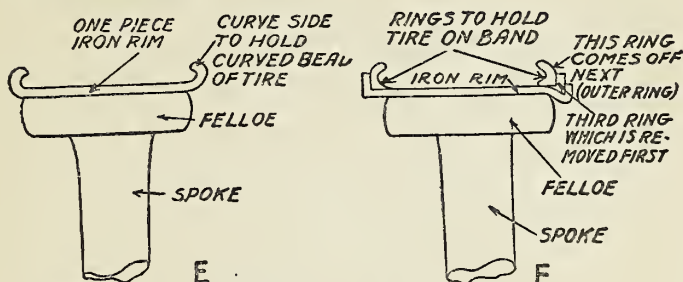 ONE PIECE
IRON RIM
CURVE SIDE
TO HOLD
CURVED BEAD
OF TIRE
FELLOE
SPOKE
E
RINGS TO HOLD
TIRE ON BAND
IRON RIM
THIS RING
COMES OFF
NEXT
(OUTER RING)
THIRD RING
WHICH IS RE-
MOVED FIRST
FELLOE
SPOKE
F